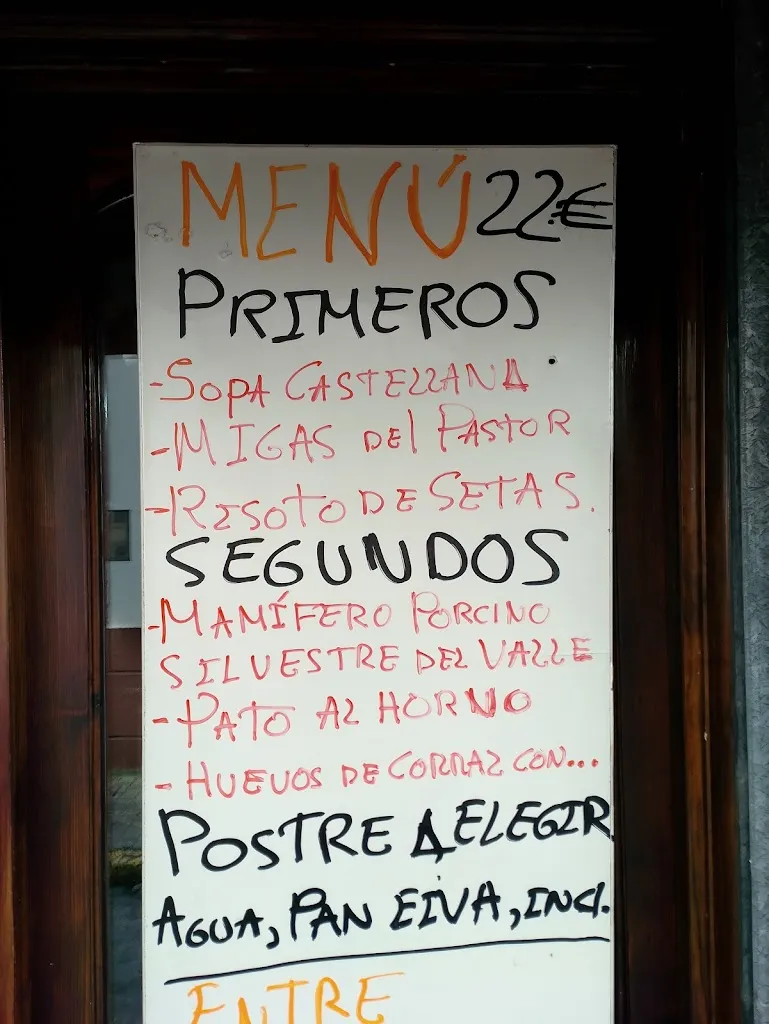 MENÚ 22€
PRIMEROS
-SOPA CASTELLANA
-MIGAS DEL PASTOR
-RISOTO DE SETAS.
SEGUNDOS
-MAMÍFERO PORCINO
SILVESTRE DEL VALLE
-PATO AL HORNO
-HUEVOS DE CORRAL CON...
POSTRE A ELEGIR
AGUA, PAN E IVA, INCL.
ENTRE